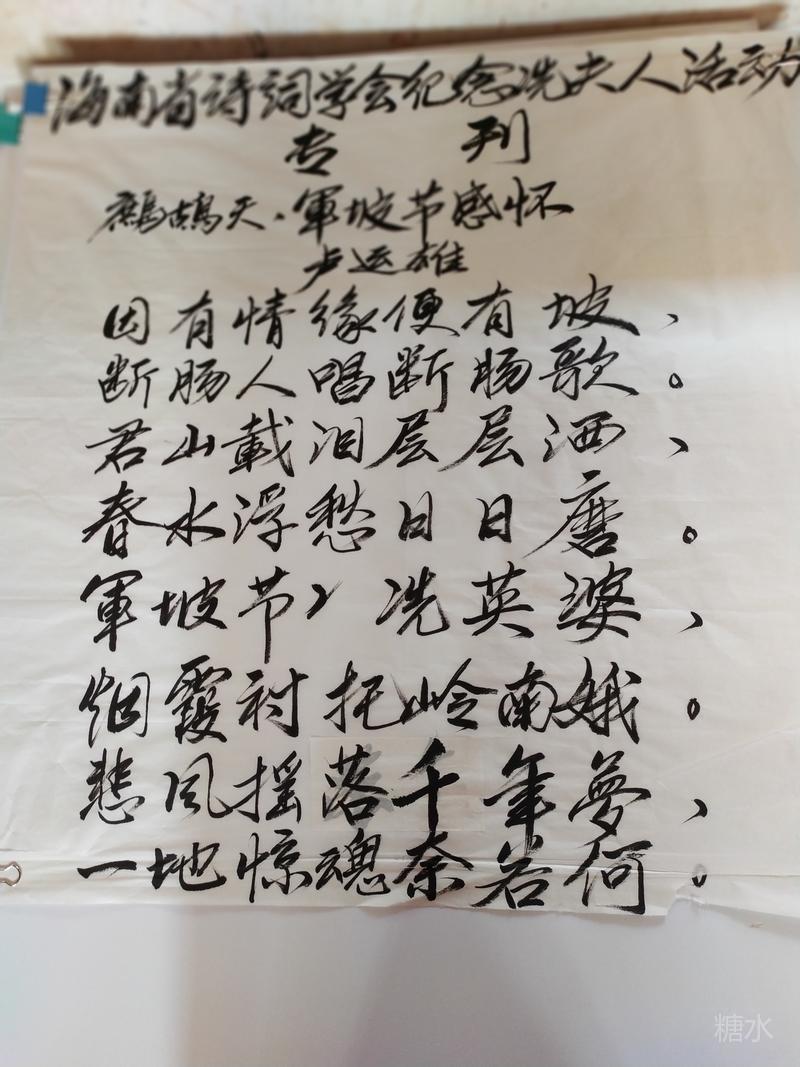 海南省诗词学会纪念冼夫人活动
专刊
鹧鸪天·軍坡节感怀
卢运雄
因有情缘便有坡、
断肠人唱断肠歌。
君山載泪层层洒、
春水浮愁日日磨。
軍坡节、冼英婆、
烟霞衬托岭南娥。
悲风摇落千年夢、
一地惊魂奈若何。
糖水